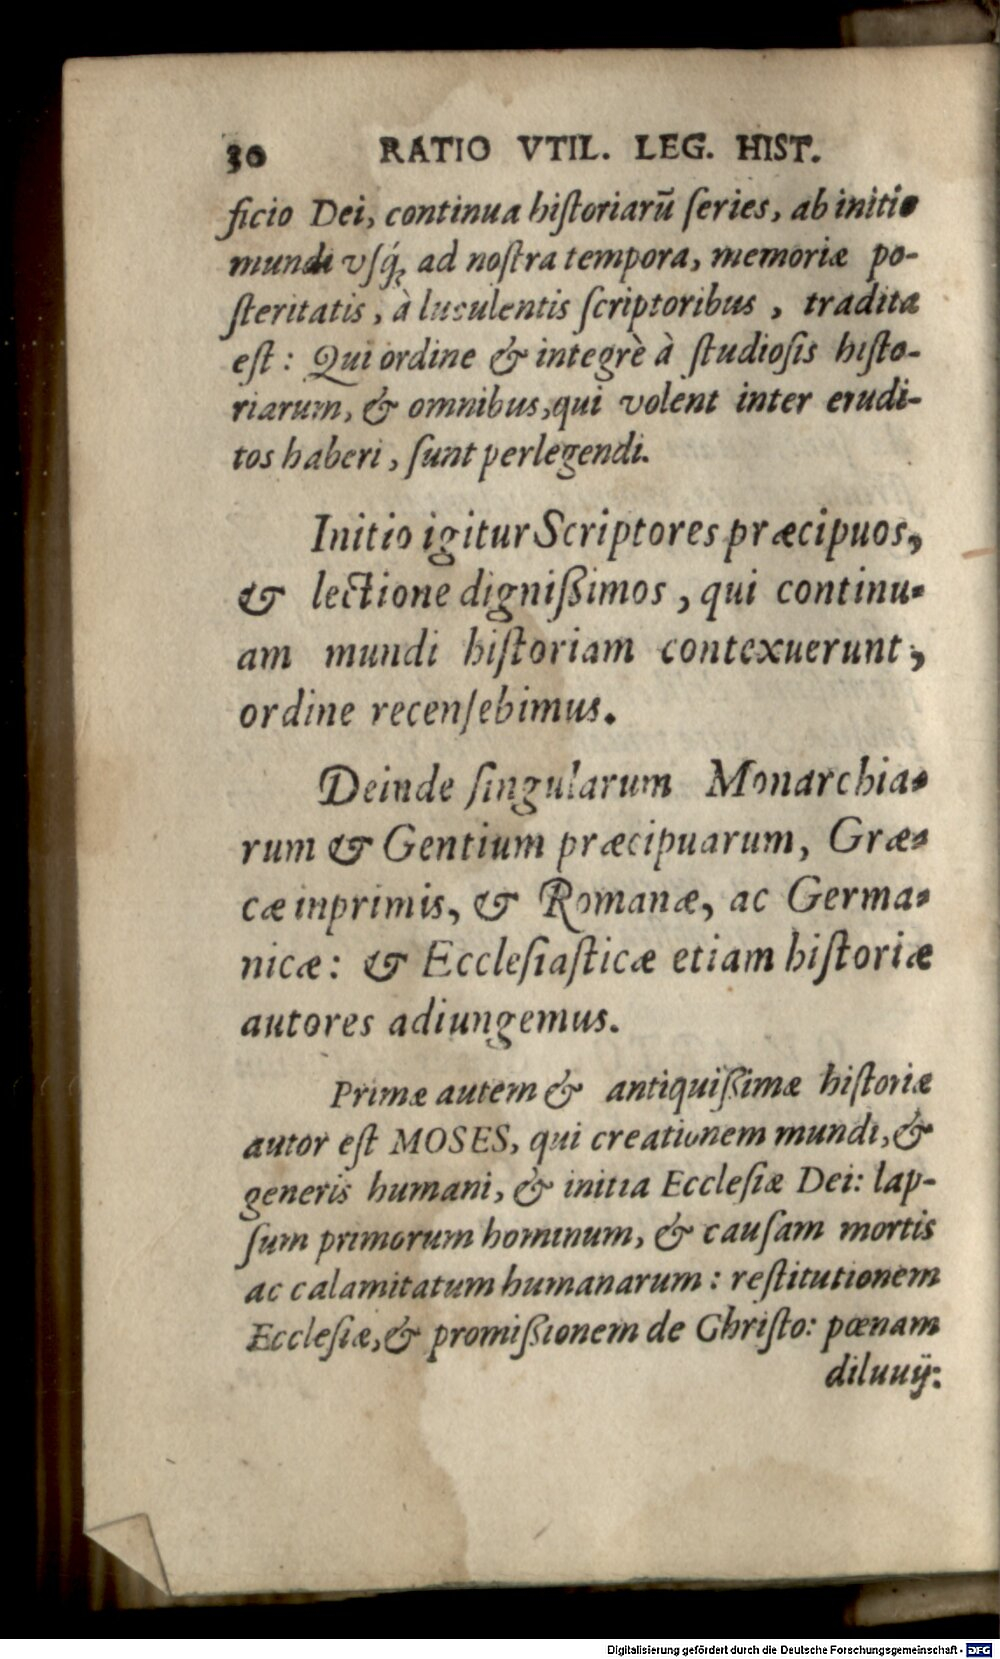 30 RATIO VTIL. LEG. HIST.
ficio Dei, continua hiſtoriarũ ſeries, ab initio
mundi vſq́; ad noſtra tempora, memoriæ po-
ſteritatis, à luculentis ſcriptoribus, tradita
eſt: Qui ordine & integrè à ſtudioſis hiſto-
riarum, & omnibus, qui volent inter erudi-
tos haberi, ſunt perlegendi.
Initio igitur Scriptores præcipuos,
& lectione digniſsimos, qui continu-
am mundi hiſtoriam contexuerunt,
ordine recenſebimus.
Deinde ſingularum Monarchia-
rum & Gentium præcipuarum, Græ-
cæ inprimis, & Romanæ, ac Germa-
nicæ: & Eccleſiaſticæ etiam hiſtoriæ
autores adiungemus.
Primæ autem & antiquiſsimæ hiſtoriæ
autor eſt MOSES, qui creationem mundi, &
generis humani, & initia Eccleſiæ Dei: lap-
ſum primorum hominum, & cauſam mortis
ac calamitatum humanarum: reſtitutionem
Eccleſiæ, & promiſsionem de Chriſto: pœnam
diluuij:
Digitalisierung gefördert durch die Deutsche Forschungsgemeinschaft - DFG